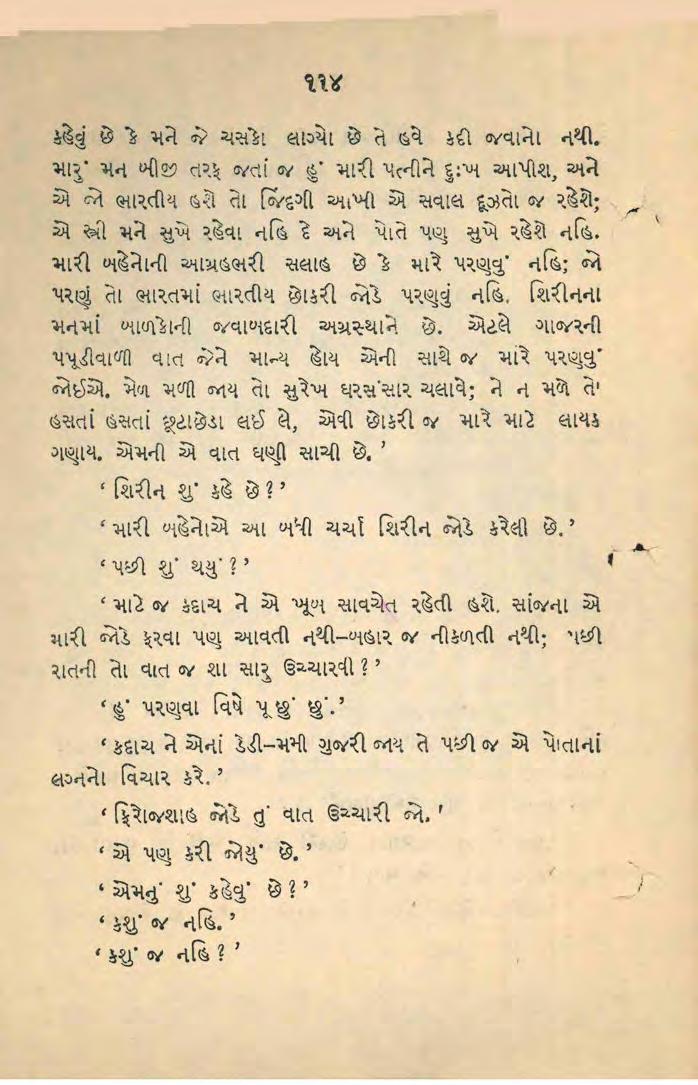 ૧૧૪
કહેવું છે કે મને જે ચસકો લાગ્યો છે તે હવે કદી જવાનો નથી.
મારું મન બીજી તરફ જતાં જ હું મારી પત્નીને દુઃખ આપીશ, અને
એ જો ભારતીય હશે તો જિંદગી આખી એ સવાલ દૂઝતો જ રહેશે;
એ સ્ત્રી મને સુખે રહેવા નહિ દે અને પોતે પણ સુખે રહેશે નહિ.
મારી બહેનોની આગ્રહભરી સલાહ છે કે મારે પરણવું નહિ; જો
પરણું તો ભારતમાં ભારતીય છોકરી જોડે પરણવું નહિ. શિરીનના
મનમાં બાળકોની જવાબદારી અગ્રસ્થાને છે. એટલે ગાજરની
પપૂડીવાળી વાત જેને માન્ય હોય એની સાથે જ મારે પરણવું
જોઈએ. મેળ મળી જાય તો સુરેખ ઘરસંસાર ચલાવે; ને ન મળે તો
હસતાં હસતાં છૂટાછેડા લઈ લે, એવી છોકરી જ મારે માટે લાયક
ગણાય. એમની એ વાત ઘણી સાચી છે.’
‘શિરીન શું કહે છે?’
‘મારી બહેનોએ આ બધી ચર્ચા શિરીન જોડે કરેલી છે.’
‘પછી શું થયું?’
‘માટે જ કદાચ ને એ ખૂબ સાવચેત રહેતી હશે. સાંજના એ
મારી જોડે ફરવા પણ આવતી નથી–બહાર જ નીકળતી નથી; પછી
રાતની તો વાત જ શા સારુ ઉચ્ચારવી?’
‘હું પરણવા વિષે પૂછું છું.’
‘કદાચ ને એનાં ડેડી–મમી ગુજરી જાય તે પછી જ એ પોતાનાં
લગ્નનો વિચાર કરે.’
‘ફિરોજશાહ જોડે તું વાત ઉચ્ચારી જો.’
‘એ પણ કરી જોયું છે.’
‘એમનું શું કહેવું છે?’
‘કશું જ નહિ.’
‘કશું જ નહિ?’